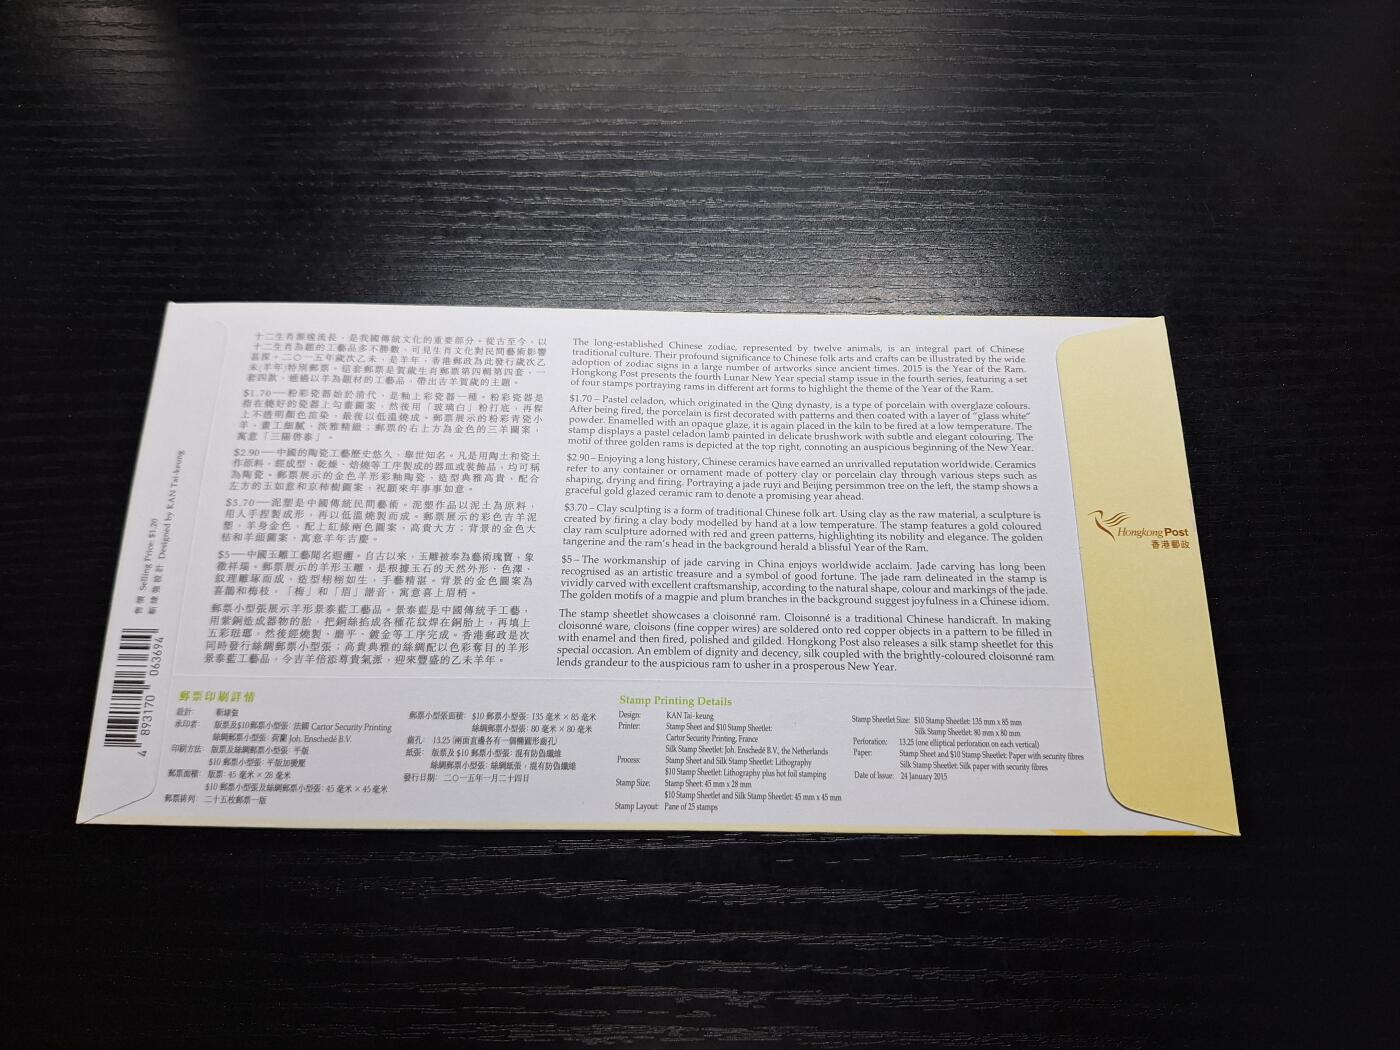 十二生肖源遠流長，是我國傳統文化的重要部分。從古至今，以
十二生肖為題的工藝品多不勝數，可見生肖文化對民間藝術影響
甚深。二〇一五年歲次乙未，是羊年，香港郵政為此發行歲次乙
未(羊年)特別郵票。這套郵票是賀歲生肖郵票第四輯第四套，一
套四款，通過以羊為題材的工藝品，帶出吉羊賀歲的主題。
$1.70－粉彩瓷器始於清代，是釉上彩瓷器一種。粉彩瓷器是
指在燒好的瓷器上勾畫圖案，然後用「玻璃白」粉打底，再髹
上不透明顏色渲染，最後以低溫燒成。郵票展示的粉彩青瓷小
羊，畫工細膩，淡雅精緻；郵票的右上方為金色的三羊圖案，
寓意「三陽啓泰」。
$2.90－中國的陶瓷工藝歷史悠久，舉世知名。凡是用陶土和瓷土
作原料，經成型、乾燥、焙燒等工序製成的器皿或裝飾品，均可稱
為陶瓷。郵票展示的金色羊形彩釉陶瓷，造型典雅高貴，配合
左方的玉如意和京柿樹圖案，祝願來年事事如意。
$3.70－泥塑是中國傳統民間藝術。泥塑作品以泥土為原料，
用人手捏製成形，再以低溫燒製而成。郵票展示的彩色吉羊泥
塑，羊身金色，配上紅綠兩色圖案，高貴大方；背景的金色大
桔和羊頭圖案，寓意羊年吉慶。
$5－中國玉雕工藝聞名遐邇。自古以來，玉雕被奉為藝術瑰寶，象
徵祥瑞。郵票展示的羊形玉雕，是根據玉石的天然外形、色澤、
紋理雕琢而成，造型栩栩如生，手藝精湛。背景的金色圖案為
喜鵲和梅枝，「梅」和「眉」諧音，寓意喜上眉梢。
郵票小型張展示羊形景泰藍工藝品。景泰藍是中國傳統手工藝，
用紫銅造成器物的胎，把銅絲掐成各種花紋焊在銅胎上，再填上
五彩琺瑯，然後經燒製、磨平、鍍金等工序完成。香港郵政是次
同時發行絲綢郵票小型張；高貴典雅的絲綢配以色彩奪目的羊形
景泰藍工藝品，令吉羊倍添尊貴氣派，迎來豐盛的乙未羊年。
The long-established Chinese zodiac, represented by twelve animals, is an integral part of Chinese
traditional culture. Their profound significance to Chinese folk arts and crafts can be illustrated by the wide
adoption of zodiac signs in a large number of artworks since ancient times. 2015 is the Year of the Ram.
Hongkong Post presents the fourth Lunar New Year special stamp issue in the fourth series, featuring a set
of four stamps portraying rams in different art forms to highlight the theme of the Year of the Ram.
$1.70 – Pastel celadon, which originated in the Qing dynasty, is a type of porcelain with overglaze colours.
After being fired, the porcelain is first decorated with patterns and then coated with a layer of "glass white"
powder. Enamelled with an opaque glaze, it is again placed in the kiln to be fired at a low temperature. The
stamp displays a pastel celadon lamb painted in delicate brushwork with subtle and elegant colouring. The
motif of three golden rams is depicted at the top right, connoting an auspicious beginning of the New Year.
$2.90 – Enjoying a long history, Chinese ceramics have earned an unrivalled reputation worldwide. Ceramics
refer to any container or ornament made of pottery clay or porcelain clay through various steps such as
shaping, drying and firing. Portraying a jade ruyi and Beijing persimmon tree on the left, the stamp shows a
graceful gold glazed ceramic ram to denote a promising year ahead.
$3.70 – Clay sculpting is a form of traditional Chinese folk art. Using clay as the raw material, a sculpture is
created by firing a clay body modelled by hand at a low temperature. The stamp features a gold coloured
clay ram sculpture adorned with red and green patterns, highlighting its nobility and elegance. The golden
tangerine and the ram's head in the background herald a blissful Year of the Ram.
$5 – The workmanship of jade carving in China enjoys worldwide acclaim. Jade carving has long been
recognised as an artistic treasure and a symbol of good fortune. The jade ram delineated in the stamp is
vividly carved with excellent craftsmanship, according to the natural shape, colour and markings of the jade.
The golden motifs of a magpie and plum branches in the background suggest joyfulness in a Chinese idiom.
The stamp sheetlet showcases a cloisonné ram. Cloisonné is a traditional Chinese handicraft. In making
cloisonné ware, cloisons (fine copper wires) are soldered onto red copper objects in a pattern to be filled in
with enamel and then fired, polished and gilded. Hongkong Post also releases a silk stamp sheetlet for this
special occasion. An emblem of dignity and decency, silk coupled with the brightly-coloured cloisonné ram
lends grandeur to the auspicious ram to usher in a prosperous New Year.
Hongkong Post
香港郵政
售價 Selling Price: $1.20
靳埭強設計 Designed by KAN Tai-keung
4 893170 063694
郵票印刷詳情
設計： 靳埭強
承印者： 版票及$10郵票小型張：法國 Cartor Security Printing
絲綢郵票小型張：荷蘭 Joh. Enschedé B.V.
印刷方法： 版票及絲綢郵票小型張：平版
$10 郵票小型張：平版加燙壓
郵票面積： 版票：45 毫米 × 28 毫米
$10 郵票小型張及絲綢郵票小型張：45 毫米 × 45 毫米
郵票排列： 二十五枚郵票一版
郵票小型張面積： $10 郵票小型張：135 毫米 × 85 毫米
絲綢郵票小型張：80 毫米 × 80 毫米
齒孔： 13.25 (兩面直邊各有一個橢圓形齒孔)
紙張： 版票及 $10 郵票小型張：混有防偽纖維
絲綢郵票小型張：絲綢紙張，混有防偽纖維
發行日期： 二〇一五年一月二十四日
Stamp Printing Details
Design: KAN Tai-keung
Printer: Stamp Sheet and $10 Stamp Sheetlet:
Cartor Security Printing, France
Silk Stamp Sheetlet: Joh. Enschedé B.V., the Netherlands
Process: Stamp Sheet and Silk Stamp Sheetlet: Lithography
$10 Stamp Sheetlet: Lithography plus hot foil stamping
Stamp Size: Stamp Sheet: 45 mm x 28 mm
$10 Stamp Sheetlet and Silk Stamp Sheetlet: 45 mm x 45 mm
Stamp Layout: Pane of 25 stamps
Stamp Sheetlet Size: $10 Stamp Sheetlet: 135 mm x 85 mm
Silk Stamp Sheetlet: 80 mm x 80 mm
Perforation: 13.25 (one elliptical perforation on each vertical)
Paper: Stamp Sheet and $10 Stamp Sheetlet: Paper with security fibres
Silk Stamp Sheetlet: Silk paper with security fibres
Date of Issue: 24 January 2015